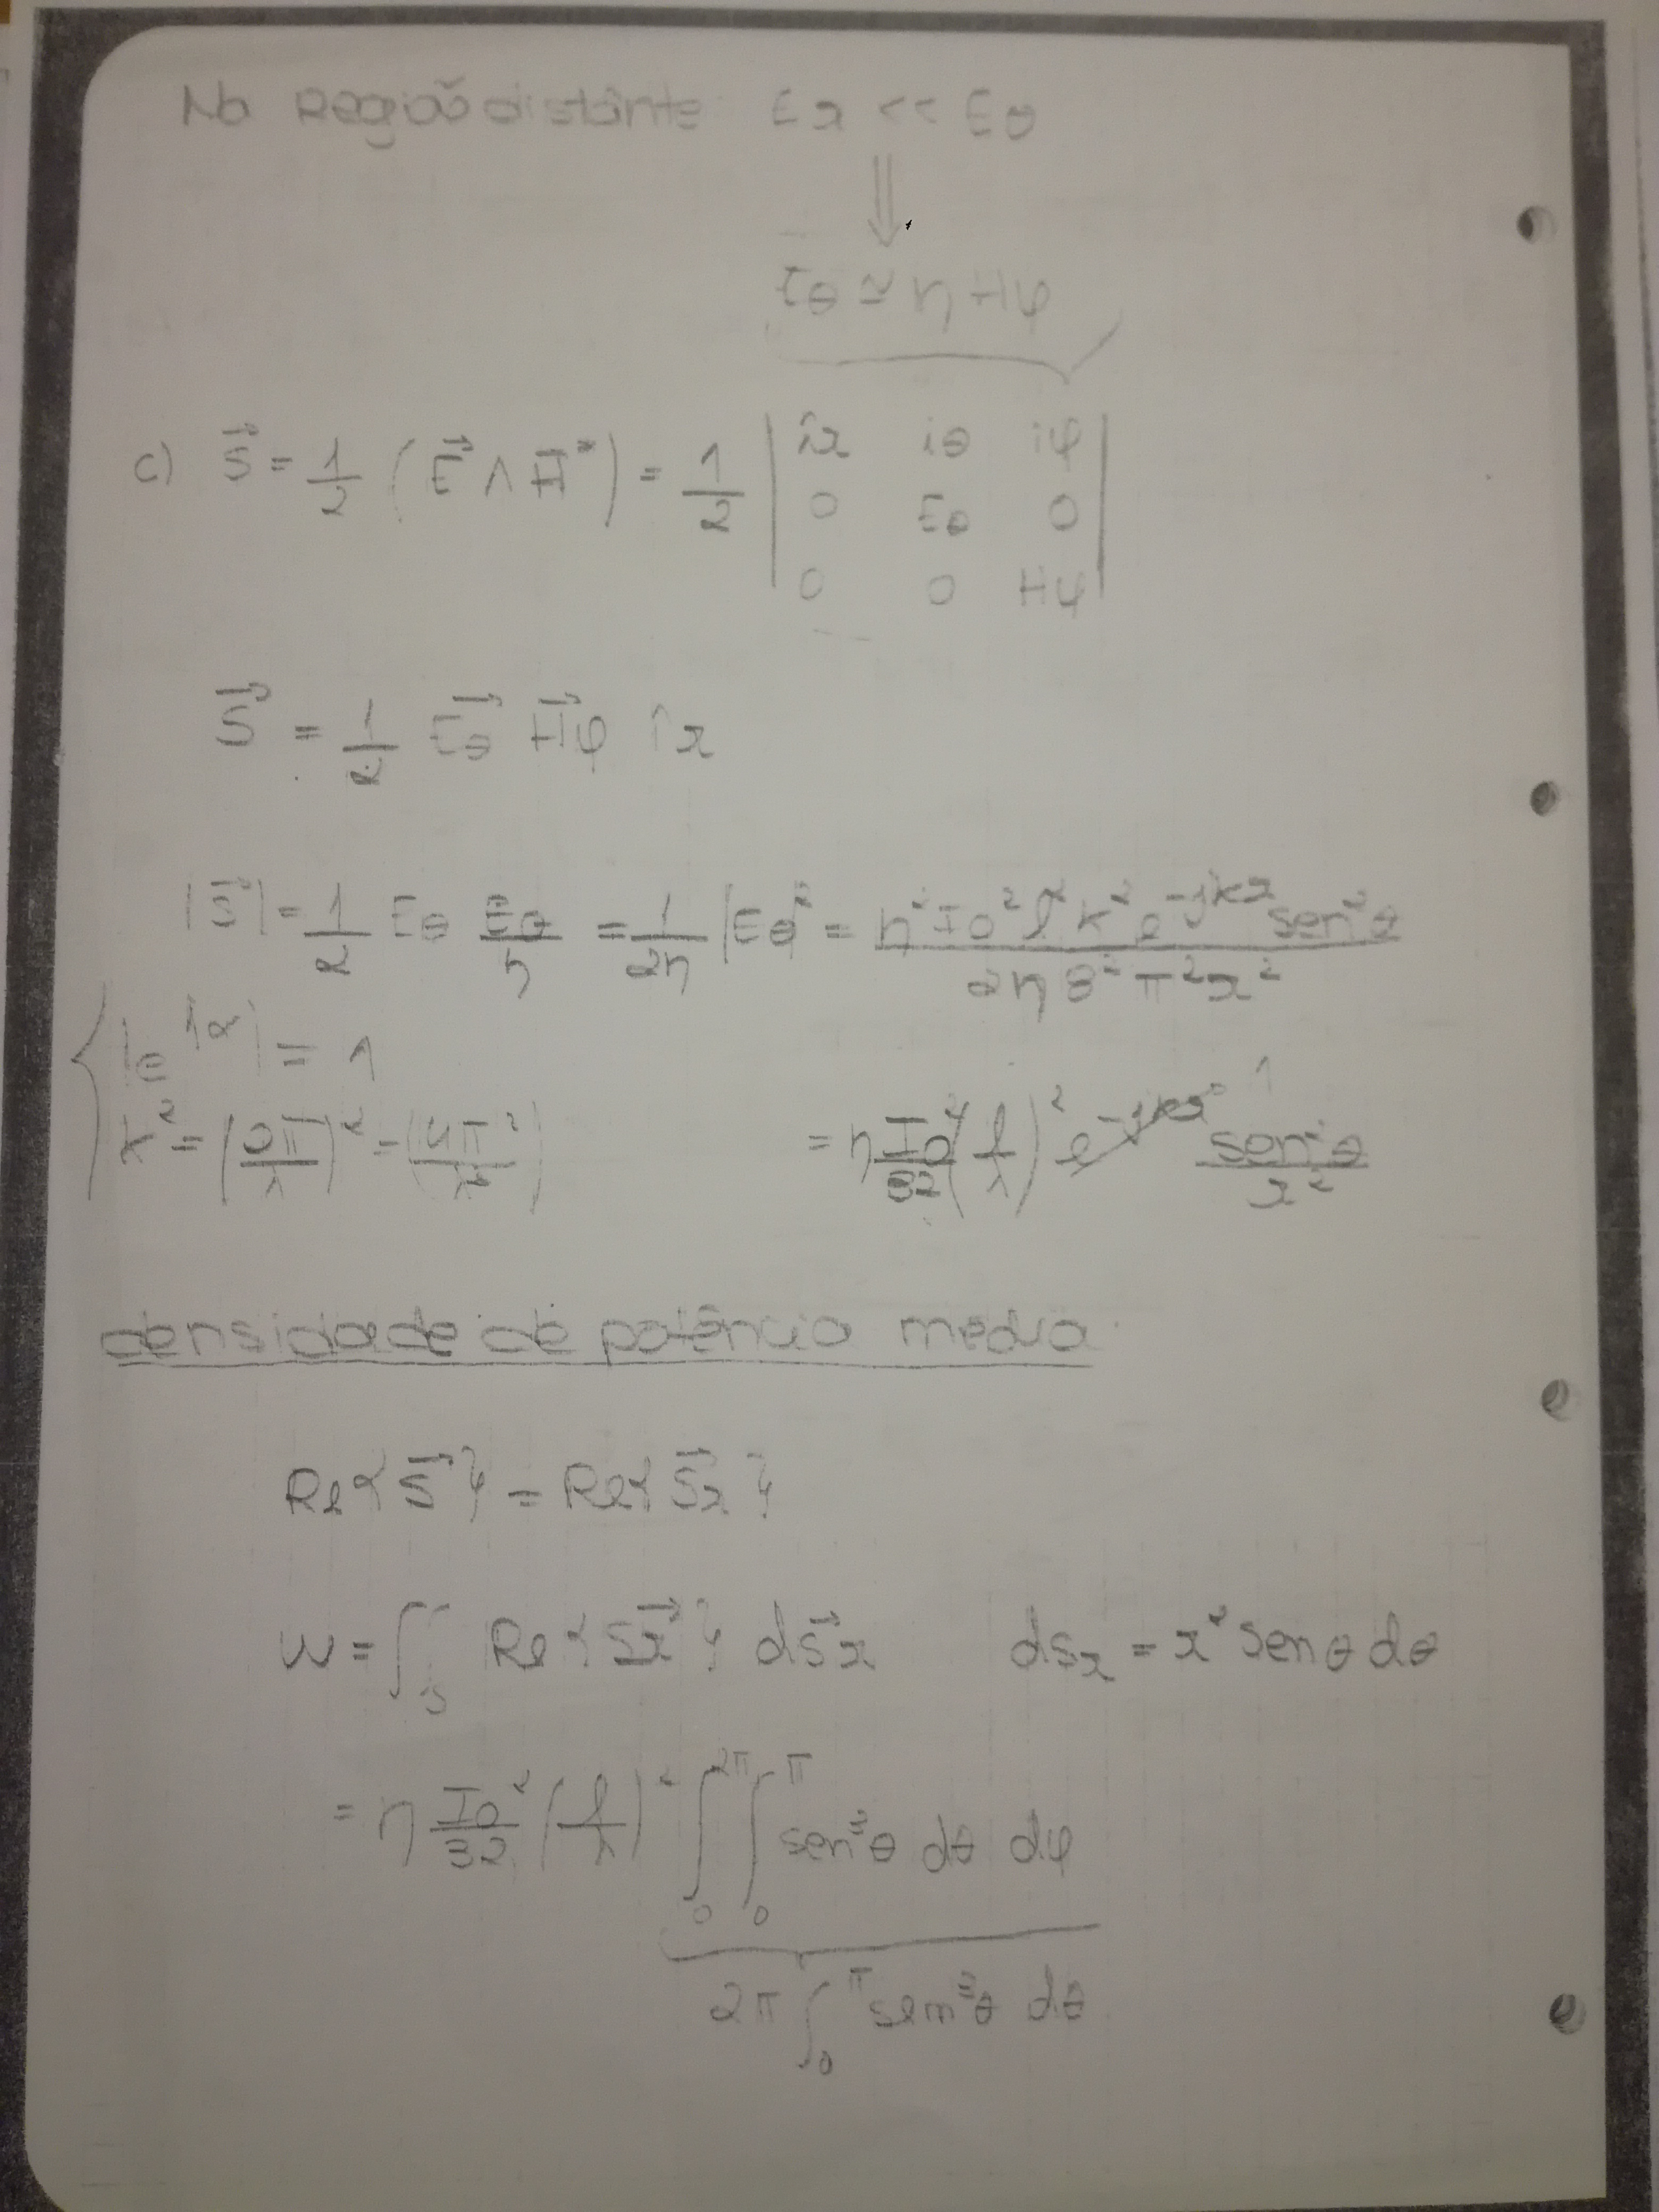 Na Região distânte Er << Eθ
⇓
Eθ ≃ η Hφ
c) S⃗ = 1/2 (E⃗ ∧ H⃗*) = 1/2 | îr iθ iφ |
| 0 Eθ 0 |
| 0 0 Hφ |
S⃗ = 1/2 E⃗θ H⃗φ îr
|S⃗| = 1/2 Eθ Eθ/η = 1/2η |Eθ² = η² I0² l² k² e^-jkr sen²θ / 2η 8² π² r²
|e |²| = 1
k² = (2π/λ)² = (4π²/λ²)
= η I0²/32 (l/λ)² e^-jkr 1 sen²θ/r²
densidade de potência media
Re{S⃗} = Re{S⃗r}
W = ∫s Re{S⃗r} dS⃗r dsr = r² senθ dθ
= η I0²/32 (l/λ)² ∫0^2π ∫0^π sen³θ dθ dφ
2π ∫0^π sen³θ dθ